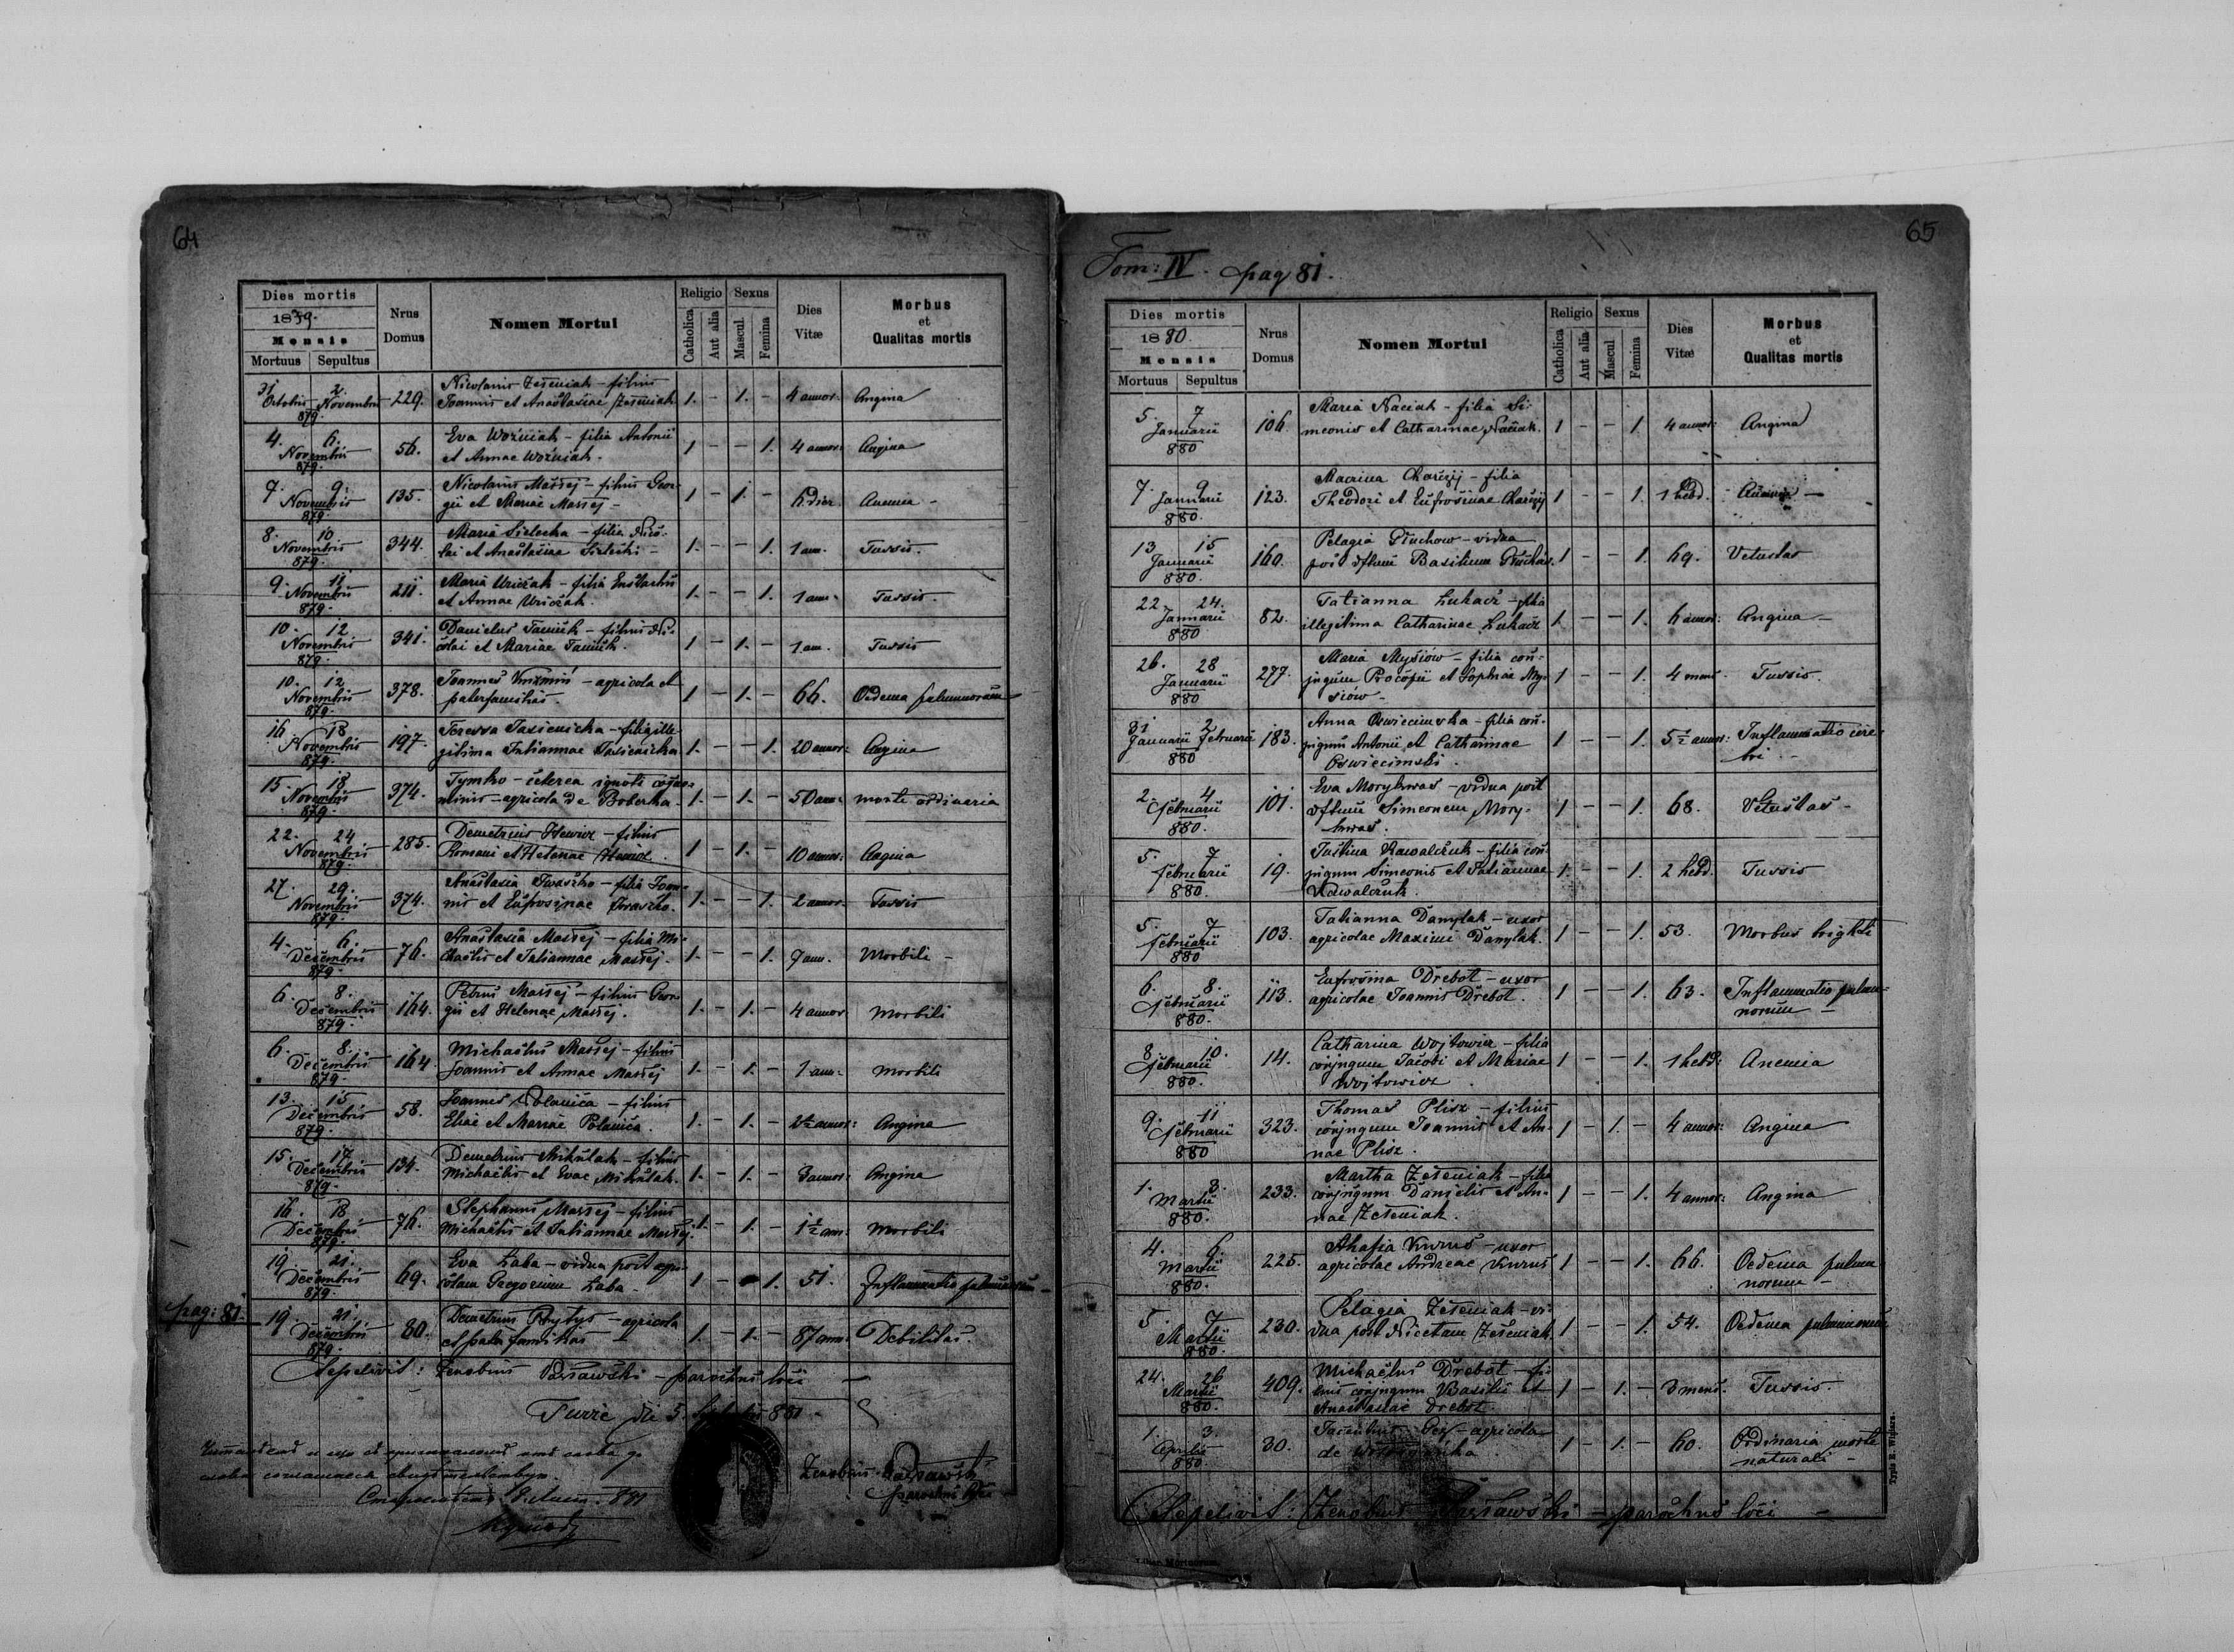 64
Dies mortis
1879.
Mensis
Mortuus Sepultus
Nrus Domus
Nomen Mortui
Religio
Catholica
Aut alia
Sexus
Mascul.
Femina
Dies Vitæ
Morbus et Qualitas mortis
31 Octobris 2. Novembris 879. 229. Nicolaus Zeleniak – filius
Joannis et Anastasiae Zeleniak 1. – 1. – 4 annor. Angina
4. 6. Novembris 879. 56. Eva Woźniak – filia Antonii
et Annae Woźniak. 1 – – 1. 4 annor. Angina
7. 9. Novembris 879. 135. Nicolaus Massej – filius Geor-
gii et Mariae Massej – 1 – 1. – 6 dier. Anemia –
8. 10 Novembris 879. 344. Maria Sielecka – filia Nico-
lai et Anastasiae Sielecki – 1. – – 1. 1 ann. Tussis.
9. 11 Novembris 879. 211. Maria – filia Eustachii
et Annae 1. – – 1. 1 ann. Tussis.
10. 12 Novembris 879. 341. Daniclus – filius Ni-
colai et Mariae 1 – 1. – 1 an. Tussis
10. 12 Novembris 879. 378. Joannes – agricola et
paterfamilias. 1 – 1. – 66. Oedema pulmonum
16. 18 Novembris 879. 197. Teressa Jasienicka – filia ille-
gitima Tatiannae Jasienicka 1. – – 1. 20 annor: Angina
15. 18 Novembris 879. 374. Tymko – cetera ignoti cogno-
minis – agricola de Boberka. 1. – 1. – 50 ann. morte ordinaria
22. 24 Novembris 879. 285. Demetrius – filius
Romani et Helenae 1 – 1. – 10 annor: Angina
27. 29. Novembris 879. 374. Anastasia Iwaszko – filia Joan-
nis et Eufrosinae Iwaszko. 1. – – 1. 2 annor. Tussis
4. 6. Decembris 879. 76. Anastasia Massej – filia Mi-
chaelis et Tatiannae Massej. 1. – – 1. 7 ann. Morbili –
6. 8. Decembris 879. 164. Petrus Massej – filius Geor-
gii et Helenae Massej. 1. – 1. – 4 annor Morbili
6. 8. Decembris 879. 164. Michaelus Massej – filius
Joannis et Annae Massej 1. – 1. – 1 ann. Morbili
13. 15 Decembris 879. 58. Joannes Polanica – filius
Eliae et Mariae Polanica. 1. – 1. – 2½ annor: Angina
15. 17 Decembris 879. 134. Demetrius Mikulak – filius
Michaelis et Evae Mikulak. 1. – 1. – 3 annor: Angina
16. 18 Decembris 879. 76. Stephanus Massej – filius
Michaelis et Tatiannae Massej. 1. – 1. – 1½ ann: Morbili
19. 21. Decembris 879. 69. Eva Łaba – vidua post agri-
colam Gregorium Łaba – 1 – – 1. 51. Inflammatio pulmonum –
pag: 81.
19. 21. Decembris 879. 80. Demetrius – agricola
et paterfamilias – 1. – 1. – 87 ann. Debilitas.
Sepelivit: Zenobius – parochus loci –
Turze die 5. 881.
Zenobius
parochus loci
881
65
Tom: IV. pag 81.
Dies mortis
1880.
Mensis
Mortuus Sepultus
Nrus Domus
Nomen Mortui
Religio
Catholica
Aut alia
Sexus
Mascul
Femina
Dies Vitæ
Morbus et Qualitas mortis
5. 7 Januarii 880 106. Maria Naciak – filia Si-
meonis et Catharinae Naciak. 1 – – 1. 4 annor: Angina
7. 9 Januarii 880. 123. Macrina – filia
Theodori et Eufrosinae 1 – – 1. 1 hebd. –
13 15 Januarii 880. 160. Pelagia – vidua
post Basilium 1 – – 1. 69. Vetustas
22. 24. Januarii 880 82. Tatianna Łukacz – filia
illegitima Catharinae Łukacz 1. – – 1. 6 annor: Angina –
26. 28 Januarii 880 277. Maria Mysiów – filia con-
jugum Procopii et Sophiae My-
siów – 1 – – 1. 4 mens. Tussis.
31 Januarii 2 Februarii 880 183. Anna Oswiecimska – filia con-
jugum Antonii et Catharinae
Oswiecimski. 1 – – 1. 5½ annor: Inflammatio cere-
bri. –
2. 4 Februarii 880. 101. Eva Morykwas – vidua post
Simeonem Mory-
kwas. 1 – – 1. 68. Vetustas –
5. 7 Februarii 880. 19. Justina Kawalczuk – filia con-
jugum Simeonis et Tatiannae
Kawalczuk. 1. – – 1. 2 hebd. Tussis
5. 7 Februarii 880 103. Tatianna Danylak – uxor
agricolae Maximi Danylak. 1 – – 1. 53. Morbus brighti
6. 8. Februarii 880. 113. Eufrosina Drebot – uxor
agricolae Joannis Drebot. 1 – – 1. 63. Inflammatio pulmo-
norum –
8 10. Februarii 880. 14. Catharina Wojtowicz – filia
conjugum Jacobi et Mariae
Wojtowicz. 1 – – 1. 1 hebd: Anemia
9. 11 Februarii 880 323. Thomas Plisz – filius
conjugum Joannis et An-
nae Plisz. 1 – 1. – 4 annor: Angina
1. 3. Martii 880. 233. Martha Zeleniak – filia
conjugum Danielis et An-
nae Zeleniak. 1 – – 1. 4 annor: Angina
4. 6. Martii 880. 225. Ahafia Kurus – uxor
agricolae Andreae Kurus 1 – – 1. 66. Oedema pulmo-
norum –
5. 7 Martii 880. 230. Pelagia Zeleniak – vi-
dua post Nicetam Zeleniak 1 – – 1. 54. Oedema pulmonum
24. 26 Martii 880. 409. Michaelus Drebot – fi-
lius conjugum Basilii et
Anastasiae Drebot 1 – 1. – 3 mens. Tussis.
1. 3. Aprilis 880. 30. – agricola
de 1 – 1. – 60. Ordinaria morte
naturali –
Sepelivit: Zenobius – parochus loci –
Liber Mortuorum